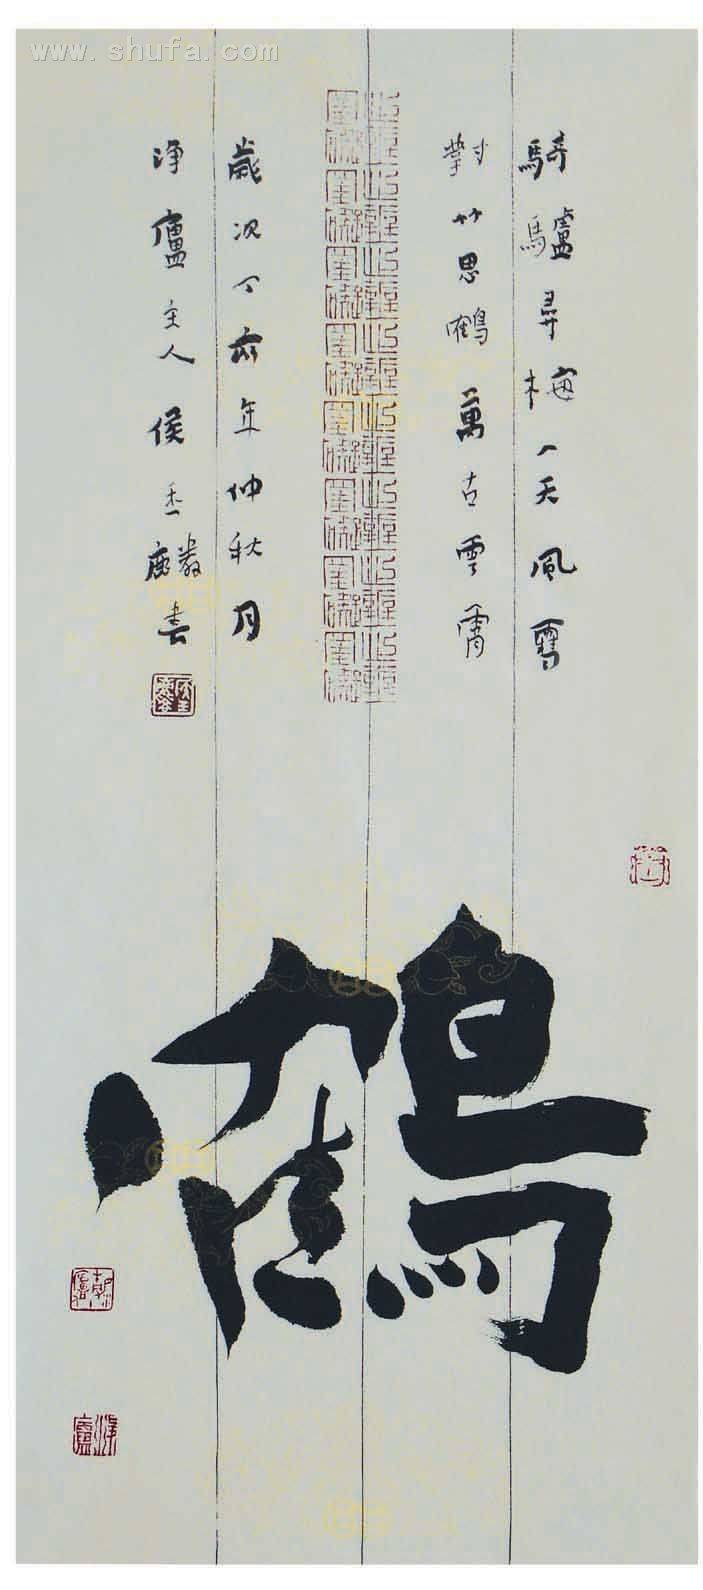 www.shufa.com
騎驢尋梅一天風雪
對竹思鶴萬古雲霄
歲次丁亥年仲秋月
淨廬主人侯書
鶴
淨廬